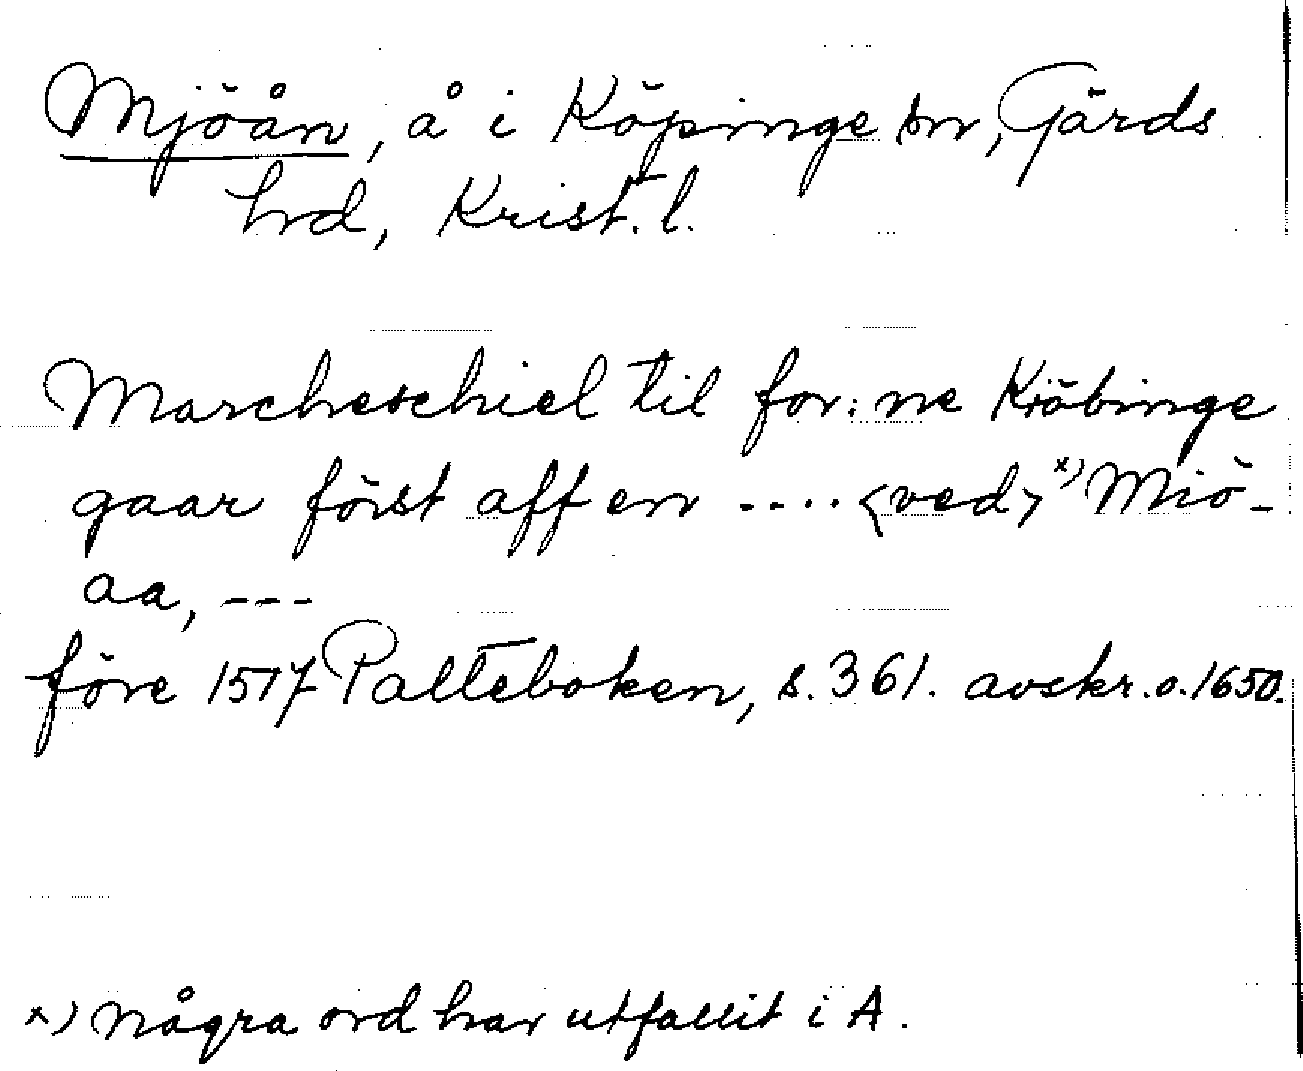 Mjöån, å i Köpinge sn, Gärds
hrd, Krist. l.
Marcheschiel til for: ne Kiöbinge
gaar först aff en .... <ved> x) Miö-
aa, ---
före 1517 Palteboken, s. 361. avskr. o. 1650.
x) Några ord har utfallit i A.